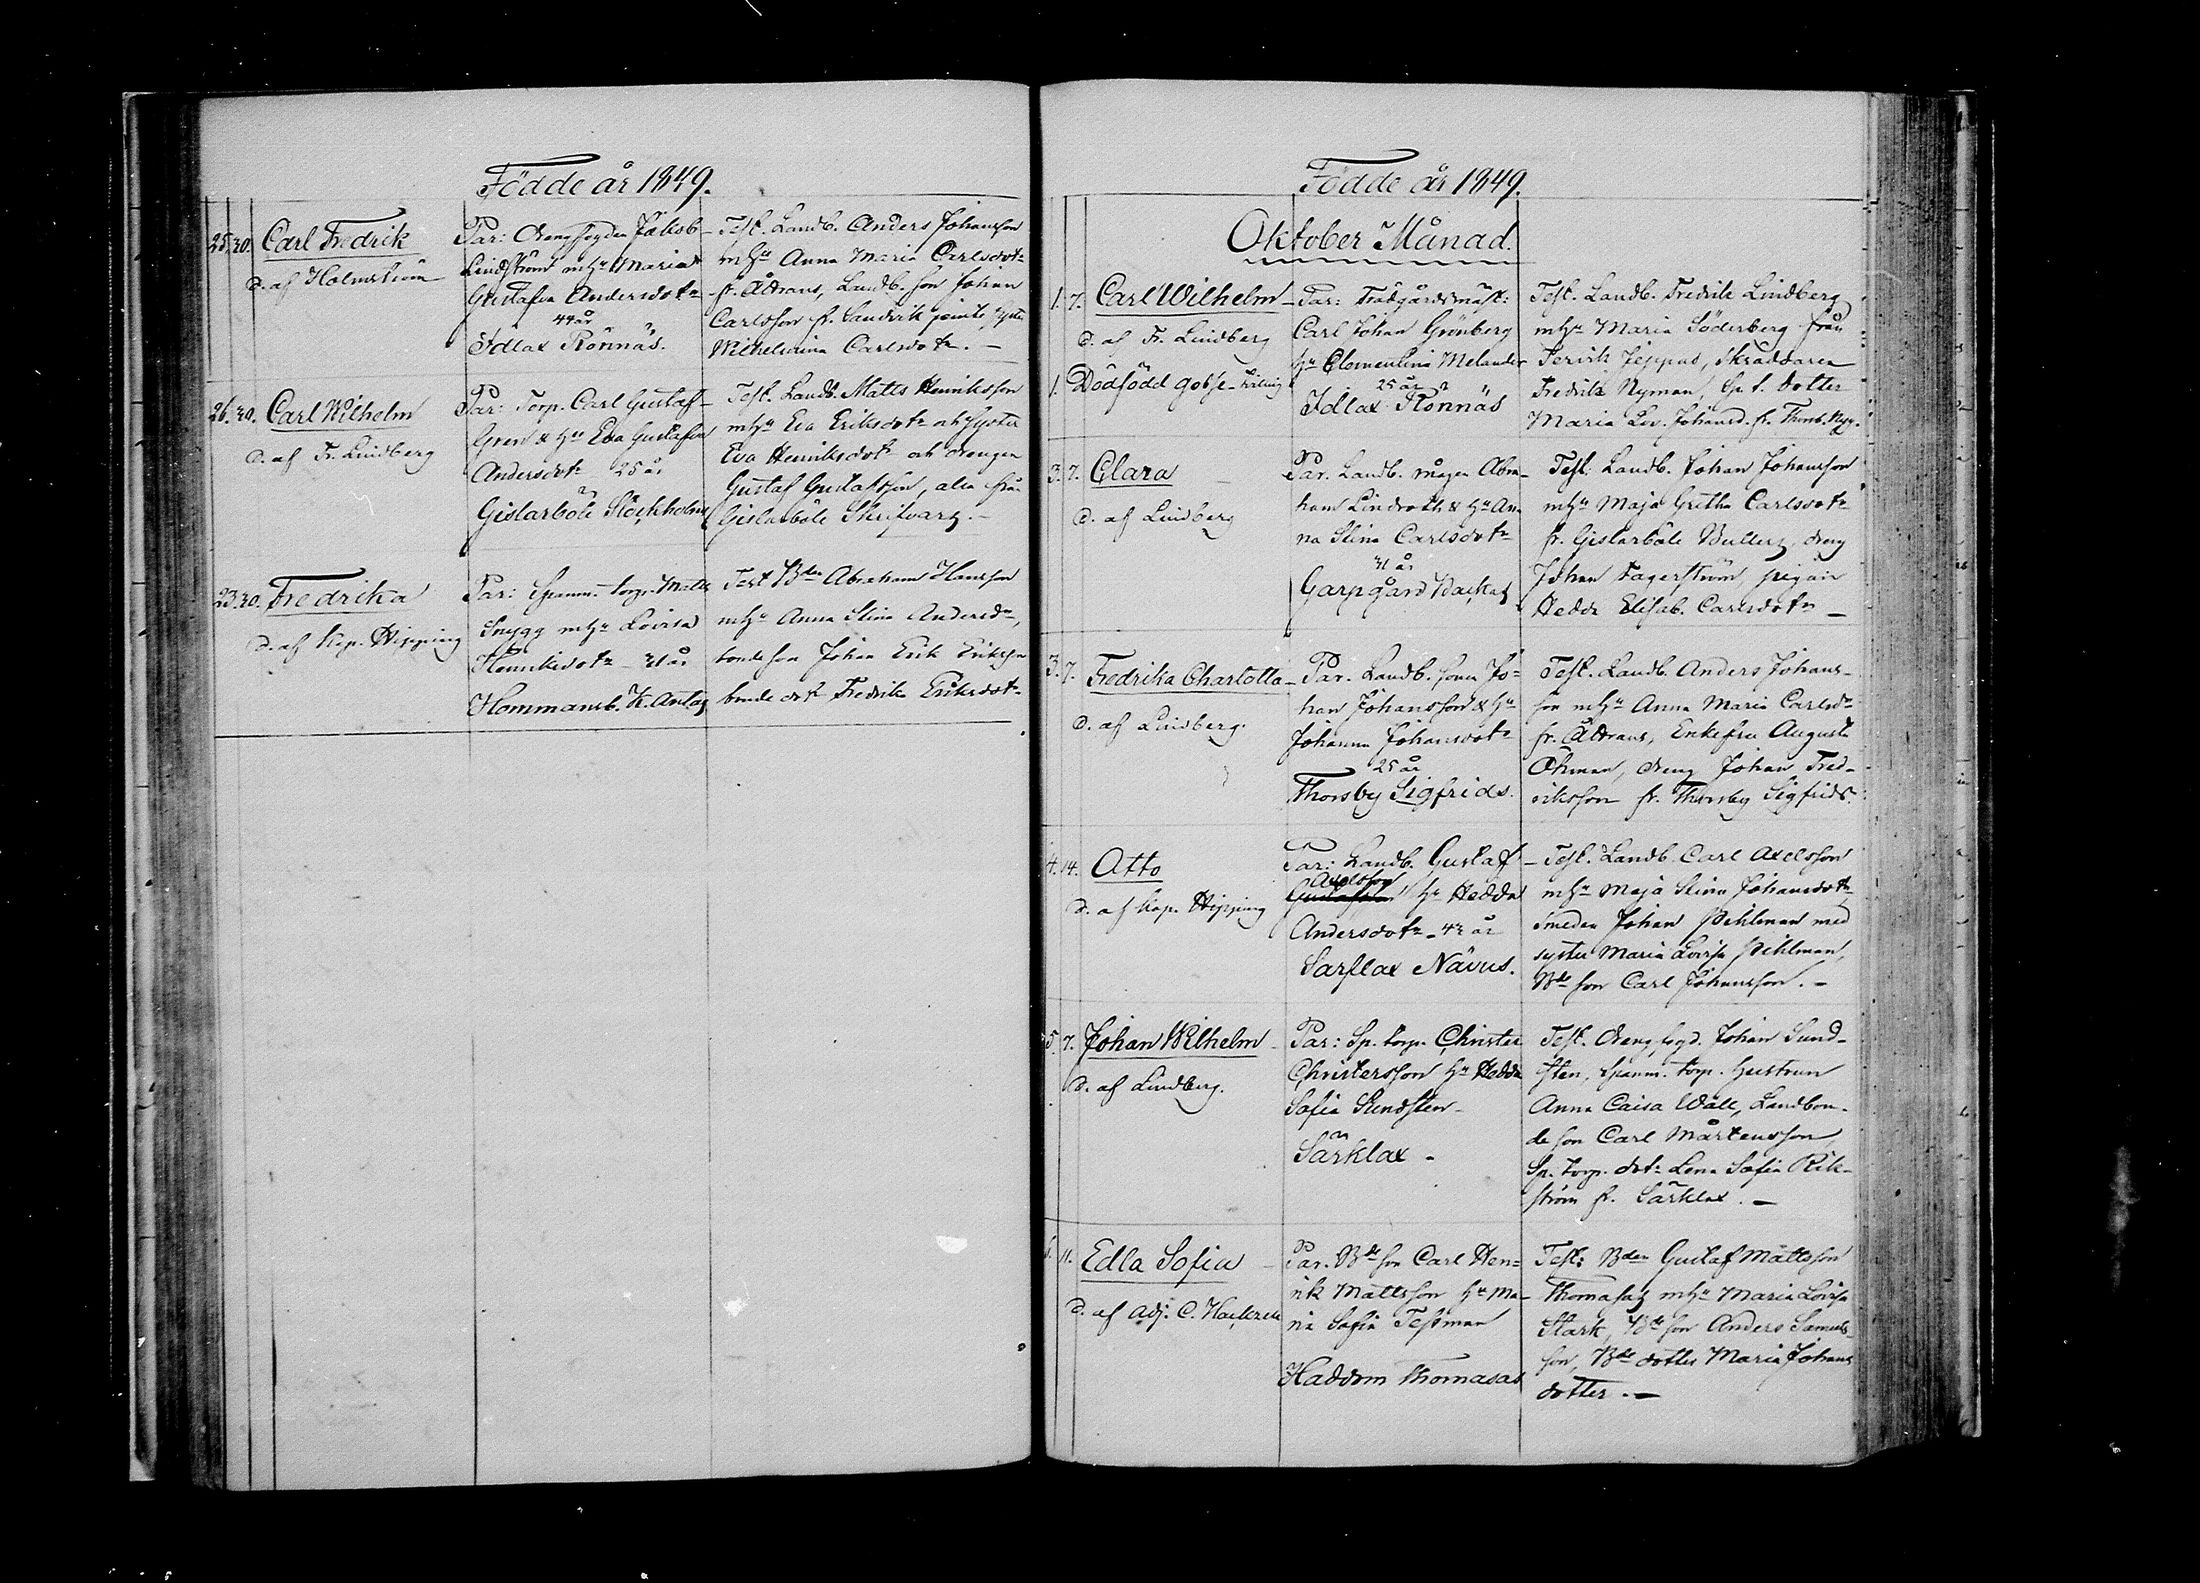 Födde år 1849.
25. 30. Carl Fredrik
d. af Holmström
Par: Drengfogden Jakob
Lindström mhu Maria
Gustafva Andersdotr
44 år
Idlax Rönnäs.
Test. Landb. Anders Johansson
mhu Anna Maria Carlsdotr
fr. Ådtrans, Landb. son Johan
Carlsson fr. Sandvik jemte syster
Wilhelmina Carlsdotr. —
26. 30. Carl Wilhelm
d. af Fr. Lindberg
Par: Torp. Carl Gustaf
Gren & hu Eva Gustafva
Andersdotr 25 år
Gislarböle Stockholms
Test. Landb. Matts Henriksson
mhu Eva Eriksdotr och syster
Eva Henriksdotr och drengen
Gustaf Gustafsson, alla från
Gislarböle Skrifvars. —
23. 30. Fredrika
d. af Kap. Hipping
Par: Spanm. torp. Matts
Snygg mhu Lovisa
Henriksdotr - 31 år
Hommansb. K. Antas
Test Bden Abraham Hansson
mhu Anna Stina Andersdr,
bondeson Johan Erik Eriksson
bonde dotr Fredrika Eriksdotr
Födde år 1849.
Oktober Månad.
1. 7. Carl Wilhelm
d. af Fr. Lindberg
1. Dödfödd gosse - tvilling
Par: Trädgårdsmäst:
Carl Johan Grönberg
hu Clementina Melander
25 år
Idlax Rönnäs
Test. Landb. Fredrik Lindberg
mhu Maria Söderberg från
Tervik Jeppas, Skräddaren
Fredrik Nyman, Sp. t. dotter
Maria Lov. Johansd. fr. Thorsb. Nyg.
3. 7. Clara
d. af Lindberg
Par. Landb. mågen Abra-
ham Lindroth & hu An-
na Stina Carlsdotr
31 år
Garpgård Backas
Test. Landb. Johan Johansson
mhu Maja Gretha Carlsdotr
fr. Gislarböle Bullers, dreng
Johan Fagerström, pigan
Hedda Elisab. Carlsdotr —
3. 7. Fredrika Charlotta
d. af Lindberg.
Par. Landb. sonen Jo-
han Johansson & hu
Johanna Johansdotr
25 år
Thorsby Sigfrids.
Test. Landb. Anders Johans-
son mhu Anna Maria Carlsdr
fr. Ådtrans, Enkefru Augusta
Öhman, dreng Johan Fred-
riksson fr. Thorsby Sigfrids.
4. 14. Atto
d. af Kap. Hipping
Par: Landb. Gustaf
Axelsson
Gustafsson hu Hedda
Andersdotr - 42 år
Sarflax Nävus.
Test. Landb. Carl Axelsson
mhu Maja Stina Johansdotr
smeden Johan Pihlman med
syster Maria Lovisa Pihlman,
Bde son Carl Johansson. —
5. 7. Johan Wilhelm
d. af Lindberg.
Par: Sp. torp. Christer
Christersson hu Hedda
Sofia Sundsten
Särklax -
Test. Drengfogd. Johan Sund-
sten, spanm. torp. hustrun
Anna Caisa Wäll, Landbon-
de son Carl Mårtensson,
Sp. torp. dotr Lena Sofia Rik-
ström fr. Särklax. —
6. 11. Edla Sofia
d. af Adj. C.
Par. Bde son Carl Hen-
rik Mattsson hu Ma-
ria Sofia Tessman
Haddom Thomasas
Test: Bden Gustaf Mattsson
Thomasas mhu Maria Lovisa
Stark, Bde son Anders Samuels-
son, Bde dotter Maria Johans
dotter. —